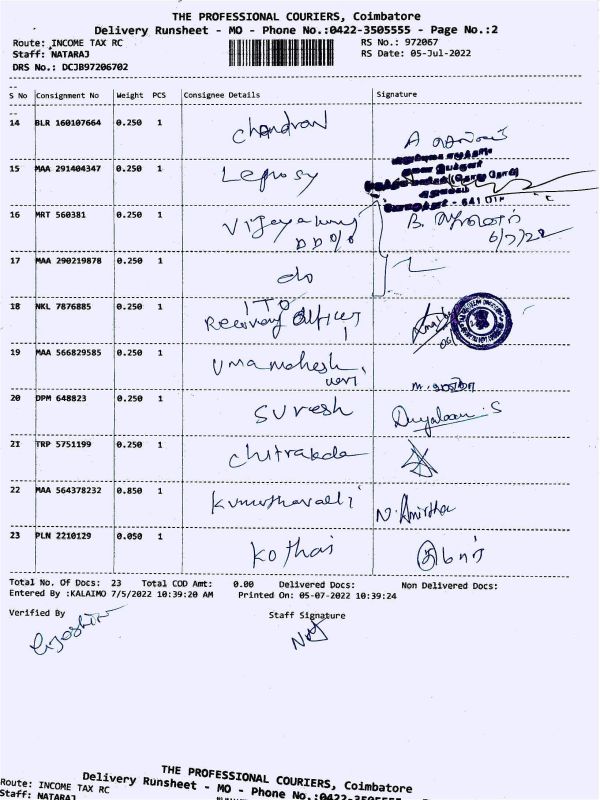 THE PROFESSIONAL COURIERS, Coimbatore
Delivery Runsheet - MO - Phone No.:0422-3505555 - Page No.:2
Route: INCOME TAX RC RS No.: 972067
Staff: NATARAJ RS Date: 05-Jul-2022
DRS No.: DCJB97206702
S No Consignment No Weight PCS Consignee Details Signature
14 BLR 160107664 0.250 1 Chandran
15 MAA 291404347 0.250 1 Leprosy
16 MRT 560381 0.250 1 B.
6/7/22
17 MAA 290219878 0.250 1 do
18 NKL 7876885 0.250 1 ITO
Recovery Officer
19 MAA 566829585 0.250 1 Umamahesh
wari
20 DPM 648823 0.250 1 Suresh
21 TRP 5751199 0.250 1
22 MAA 564378232 0.850 1 N. Amirtha
23 PLN 2210129 0.050 1 Kothai
Total No. Of Docs: 23 Total COD Amt: 0.00 Delivered Docs: Non Delivered Docs:
Entered By :KALAIMO 7/5/2022 10:39:20 AM Printed On: 05-07-2022 10:39:24
Verified By Staff Signature
THE PROFESSIONAL COURIERS, Coimbatore
Delivery Runsheet - MO - Phone No.:0422-3505555
Route: INCOME TAX RC
Staff: NATARAJ